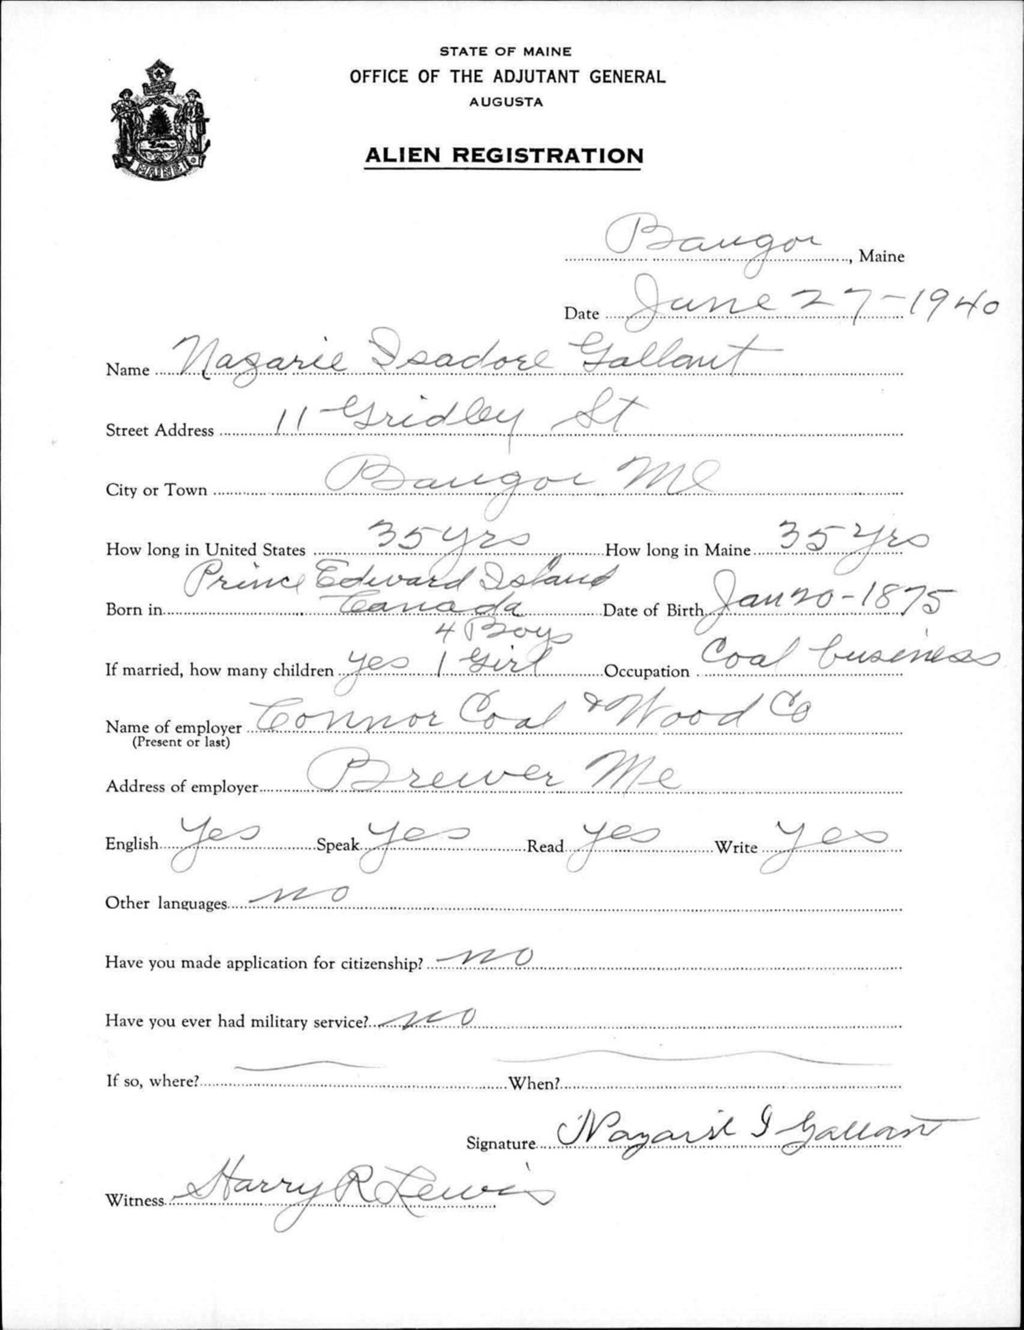 STATE OF MAINE
OFFICE OF THE ADJUTANT GENERAL
AUGUSTA
ALIEN REGISTRATION
MAINE
Bangor, Maine
Date June 27-1940
Name Nazarie Isadore Gallant
Street Address 11 Gridley St
City or Town Bangor Me
How long in United States 35 yrs How long in Maine 35 yrs
Prince Edward Island
Born in Canada Date of Birth Jan 20-1875
4 Boys
If married, how many children yes 1 Girl Occupation Coal business
Name of employer Connor Coal & Wood Co
(Present or last)
Address of employer Brewer Me
English Yes Speak Yes Read Yes Write Yes
Other languages no
Have you made application for citizenship? no
Have you ever had military service? no
If so, where? When?
Signature Nazarie I Gallant
Witness Harry R Lewis